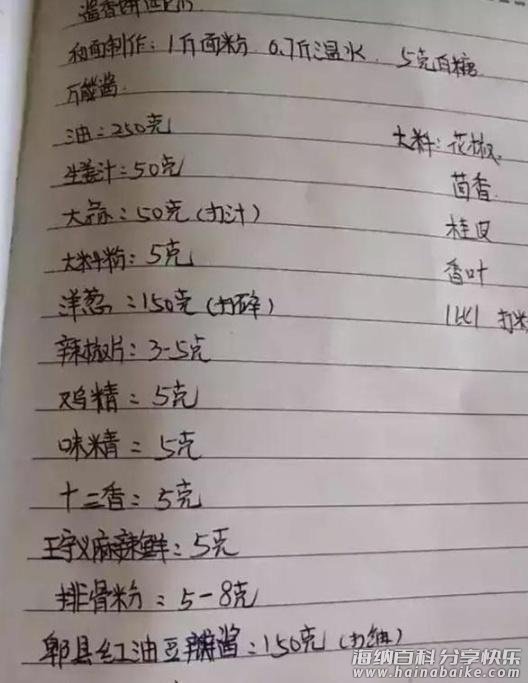 酱香饼配方
和面制作：1斤面粉 0.7斤温水 5克白糖
万能酱
油：250克
生姜汁：50克
大蒜：50克（打汁）
大料粉：5克
洋葱：150克（打碎）
辣椒片：3-5克
鸡精：5克
味精：5克
十三香：5克
王守义麻辣鲜：5克
排骨粉：5-8克
郫县红油豆瓣酱：150克（打细）
大料：花椒
茴香
桂皮
香叶
1:1:1 打粉
海纳百科 分享快乐
www.hainabaike.com